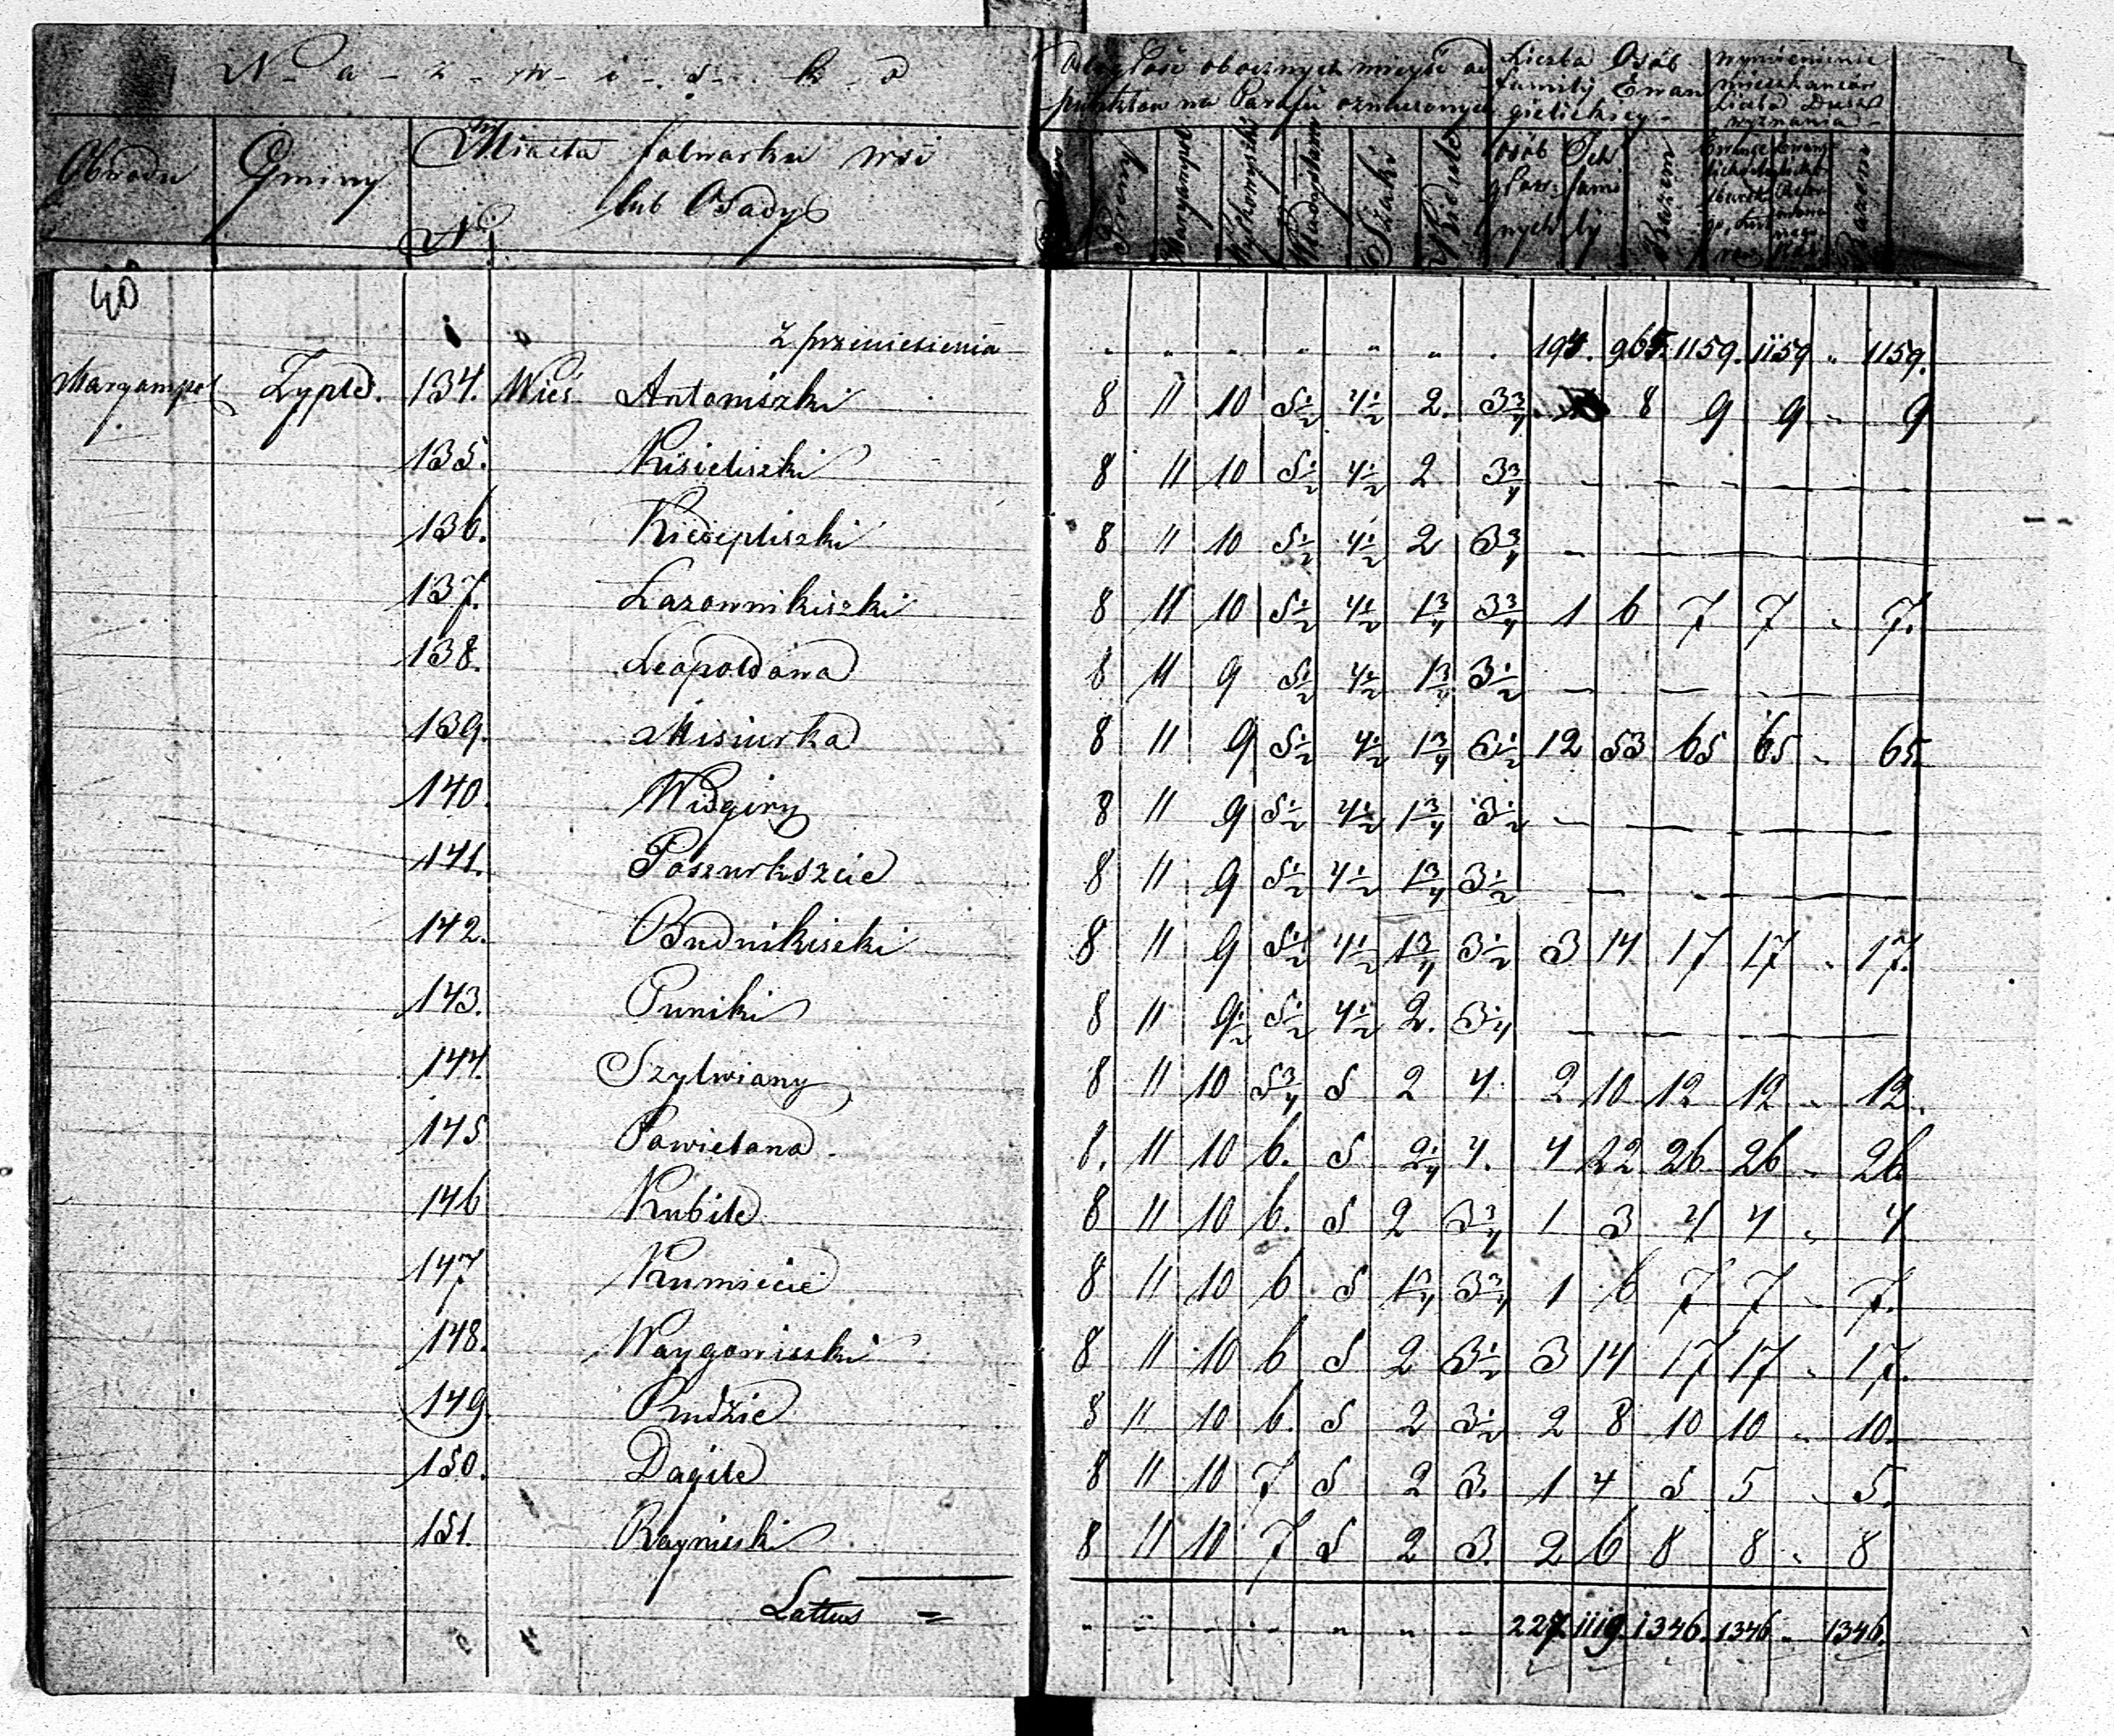 N - a - z - w - i - s - k - a
Obwodu Gminy Miasta folwarku wsi
lub Osady
N.
Odległość obecnych miejsc od
punktów na Parafii oznaczonych
Preny Maryampol Wyłkowyszki Władysławów Szaki
Liczba Osób
familij Ewan
gielickiey
Osób głównych Ich familij Razem
Wymienienie
mieszkańców
Liczba Dusz
wyznania
Razem
40
z przeniesienia " " " " " " . 194. 965. 1159. 1159 " 1159.
Maryampol Zyple. 134. Wieś Antoniszki 8 11 10 5½ 4½ 2. 3¾ 8 9 9 " 9
135. Kisieliszki 8 11 10 5½ 4½ 2 3¾ — — — — —
136. Kiedepliszki 8 11 10 5½ 4½ 2 3¾ — — — —
137. Łazownikiszki 8 11 10 5½ 4½ 1¾ 3¾ 1 6 7 7 " 7.
138. Leopoldowa 8 11 9 5½ 4½ 1¾ 3½ — — — — —
139. Misiurka 8 11 9 5½ 4½ 1¾ 3½ 12 53 65 65 " 65.
140. Widgiry 8 11 9 5½ 4½ 1¾ 3½ — — — —
141. Poszurkszcie 8 11 9 5½ 4½ 1¾ 3½ — — — —
142. Budnikiszki 8 11 9 5½ 4½ 1¾ 3½ 3 14 17 17 " 17.
143. Puniki 8 11 9½ 5½ 4½ 2. 3¼ — — — — —
144. Szylwiany 8 11 10 5¾ 5 2 4. 2 10 12 12 " 12.
145 Powielana 8. 11 10 6. 5 2¼ 4. 4 22 26 26 " 26
146 Kubile 8 11 10 6. 5 2 3¾ 1 3 4 4 " 4
147 Kumiecie 8 11 10 6 5 1¾ 3¾ 1 6 7 7 " 7.
148. Waygowiszki 8 11 10 6 5 2 3½ 3 14 17 17 " 17.
149 Rudzie 8 11 10 6. 5 2 3½ 2 8 10 10 " 10.
150. Dagile 8 11 10 7 5 2 3. 1 4 5 5 " 5.
151. Rayniszki 8 11 10 7 5 2 3. 2 6 8 8 " 8
Lattus = " " - " " " - 227 1119 1346. 1346 " 1346.